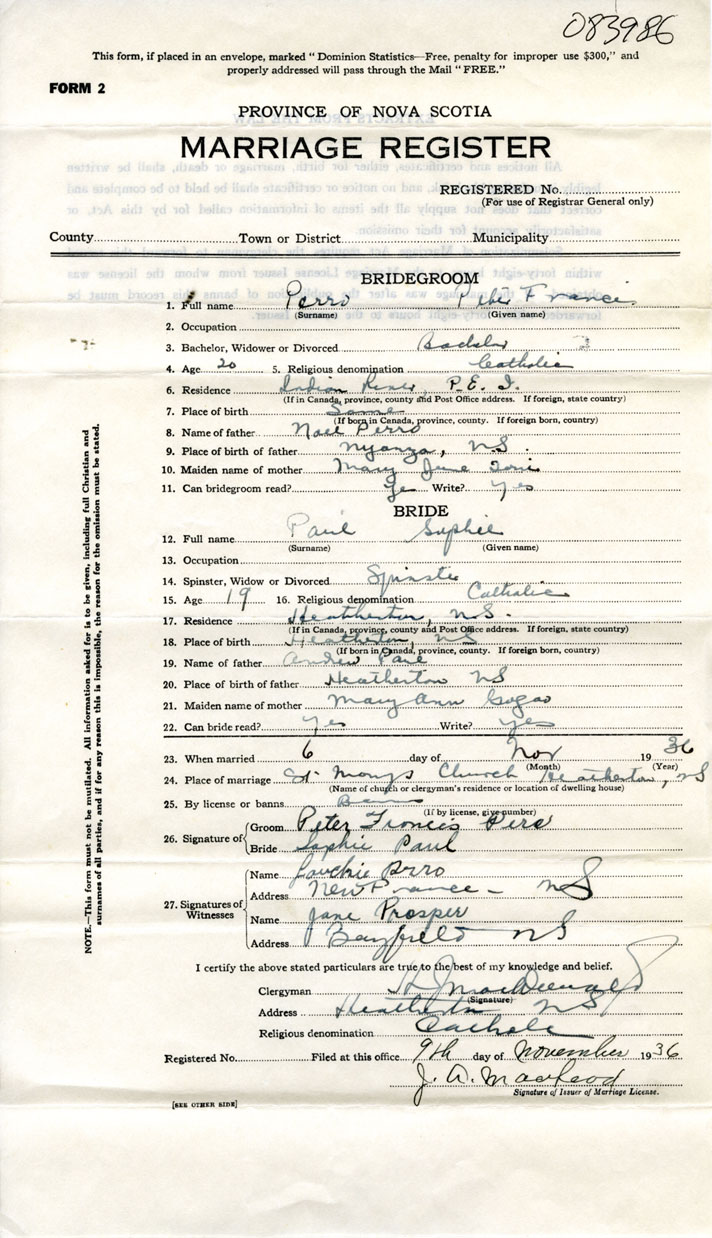 083986
This form, if placed in an envelope, marked "Dominion Statistics—Free, penalty for improper use $300," and
properly addressed will pass through the Mail "FREE."
FORM 2
PROVINCE OF NOVA SCOTIA
MARRIAGE REGISTER
REGISTERED No.
(For use of Registrar General only)
County Town or District Municipality
BRIDEGROOM
1. Full name Perro Peter Francis
(Surname) (Given name)
2. Occupation
3. Bachelor, Widower or Divorced Bachelor
4. Age 20 5. Religious denomination Catholic
6. Residence Indian River, P.E.I.
(If in Canada, province, county and Post Office address. If foreign, state country)
7. Place of birth Same
(If born in Canada, province, county. If foreign born, country)
8. Name of father Noel Perro
9. Place of birth of father Nyanza, NS.
10. Maiden name of mother Mary Jane
11. Can bridegroom read? Yes Write? Yes
BRIDE
12. Full name Paul Sophie
(Surname) (Given name)
13. Occupation
14. Spinster, Widow or Divorced Spinster
15. Age 19 16. Religious denomination Catholic
17. Residence Heatherton, N.S.
(If in Canada, province, county and Post Office address. If foreign, state country)
18. Place of birth Heatherton, NS
(If born in Canada, province, county. If foreign born, country)
19. Name of father Andrew Paul
20. Place of birth of father Heatherton NS
21. Maiden name of mother Mary Ann Gogoo
22. Can bride read? Yes Write? Yes
23. When married 6 day of Nov 1936
(Month) (Year)
24. Place of marriage St Marys Church Heatherton, NS
(Name of church or clergyman's residence or location of dwelling house)
25. By license or banns Banns
(If by license, give number)
26. Signature of Groom Peter Francis Pero
Bride Sophie Paul
27. Signatures of Witnesses Name Perro
Address New France - NS
Name Jane Prosper
Address Bayfield NS
I certify the above stated particulars are true to the best of my knowledge and belief.
Clergyman H J MacDonald
(Signature)
Address Heatherton NS
Religious denomination Catholic
Registered No. Filed at this office 9th day of November 1936
J. A. Macleod
Signature of Issuer of Marriage License.
[SEE OTHER SIDE]
NOTE.—This form must not be mutilated. All information asked for is to be given, including full Christian and
surnames of all parties, and if for any reason this is impossible, the reason for the omission must be stated.